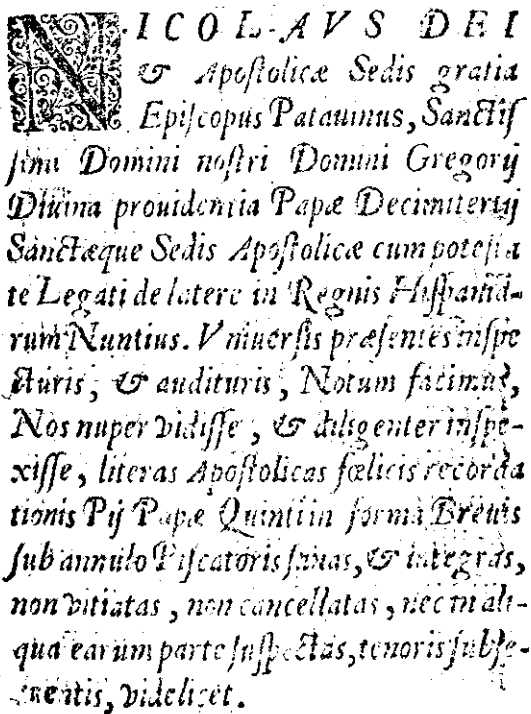 NICOLAVS DEI
& Apostolicæ Sedis gratia
Episcopus Patauinus, Sanctis
simi Domini nostri Domini Gregorij
Diuina prouidentia Papæ Decimitertij
Sanctæque Sedis Apostolicæ cum potesta
te Legati de latere in Regnis Hispania-
rum Nuntius. Vniuersis præsentes inspe
cturis, & audituris, Notum facimus,
Nos nuper vidisse, & diligenter inspe-
xisse, literas Apostolicas fœlicis recorda
tionis Pij Papæ Quinti in forma Breuis
sub annulo Piscatoris sanas, & integras,
non vitiatas, non cancellatas, nec in ali-
qua earum parte suspectas, tenoris subse-
quentis, videlicet.